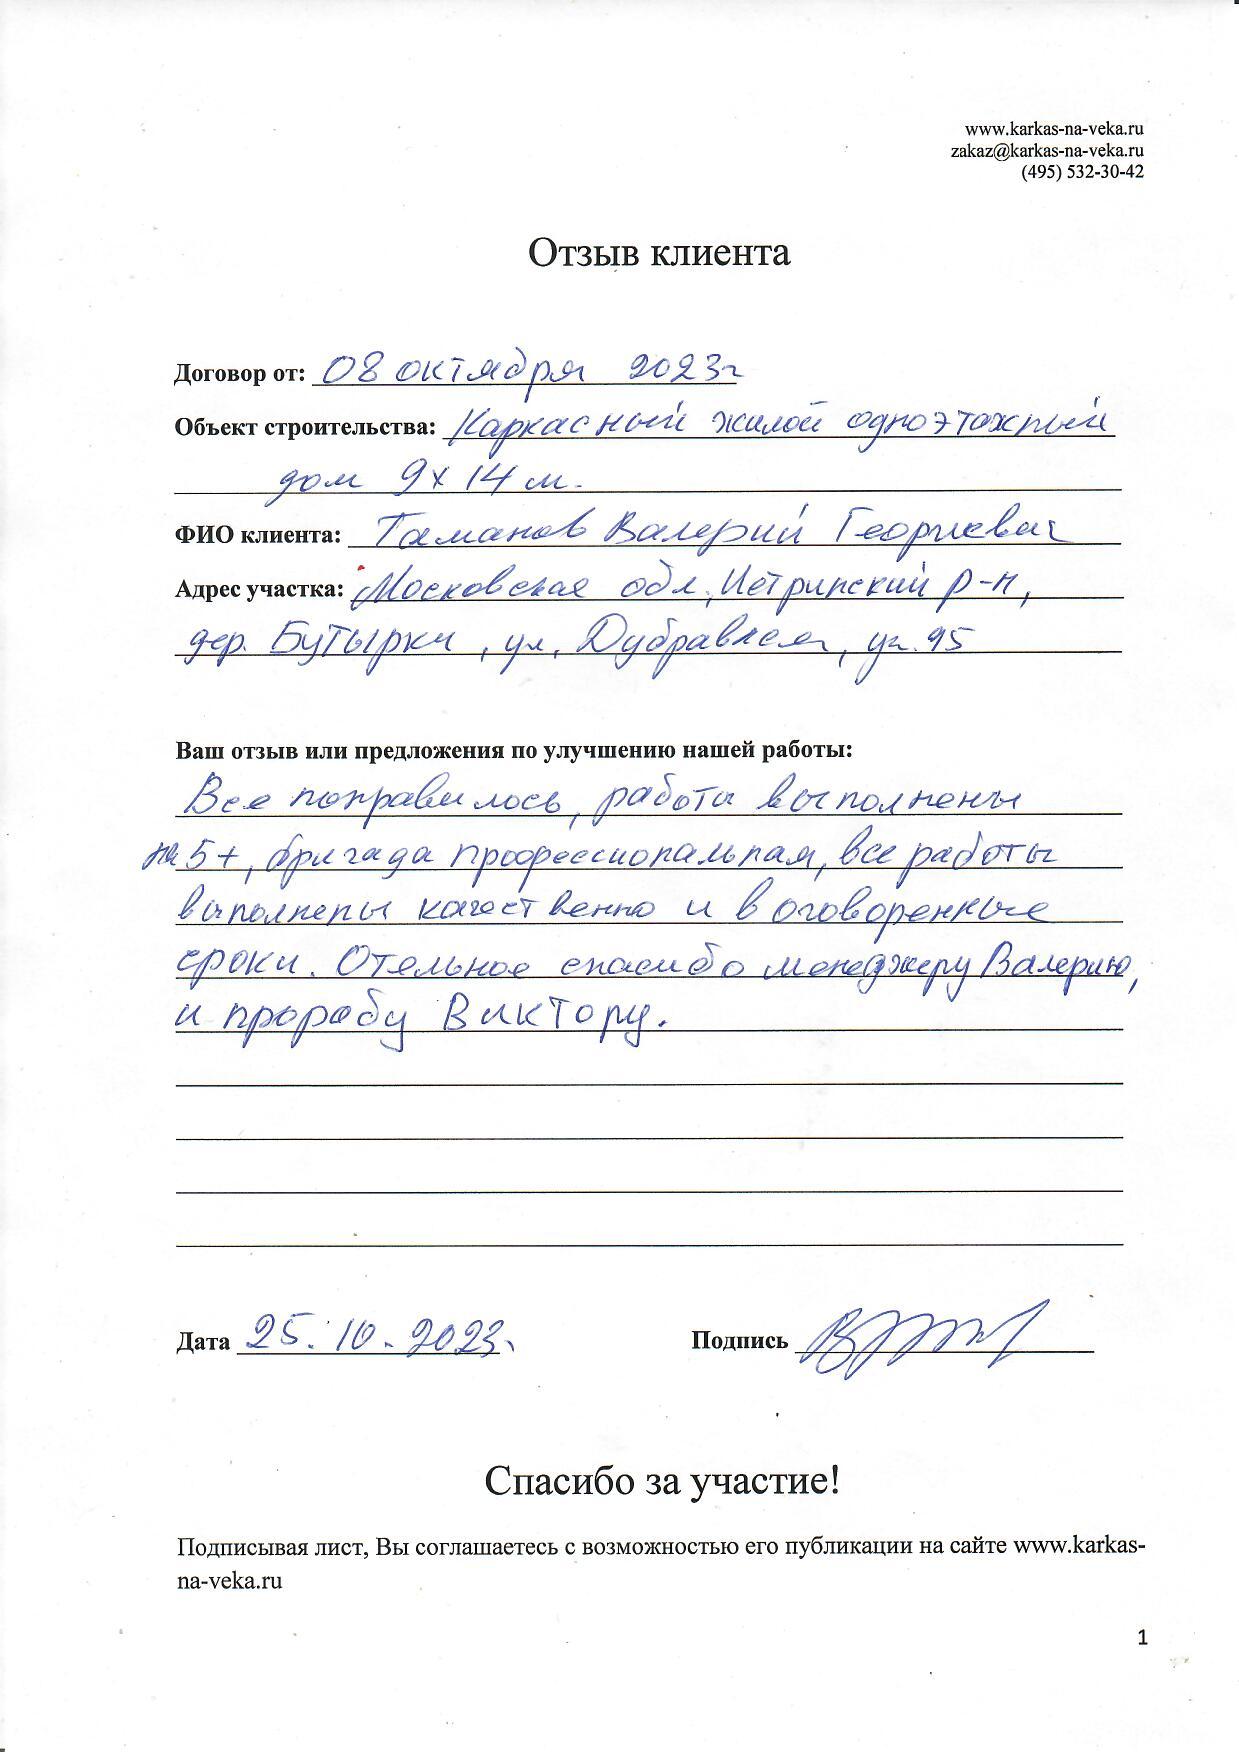 www.karkas-na-veka.ru
zakaz@karkas-na-veka.ru
(495) 532-30-42
Отзыв клиента
Договор от: 08 октября 2023г
Объект строительства: Каркасный жилой одноэтажный
дом 9х14 м.
ФИО клиента: Таманов Валерий Георгиевич
Адрес участка: Московская обл, Истринский р-н,
дер. Бутырки, ул. Дубравная, уч. 95
Ваш отзыв или предложения по улучшению нашей работы:
Все понравилось, работы выполнены
на 5+, бригада профессиональная, все работы
выполнены качественно и в оговоренные
сроки. Отельное спасибо менеджеру Валерию,
и прорабу Виктору.
Дата 25.10.2023.
Подпись
Спасибо за участие!
Подписывая лист, Вы соглашаетесь с возможностью его публикации на сайте www.karkas-
na-veka.ru
1